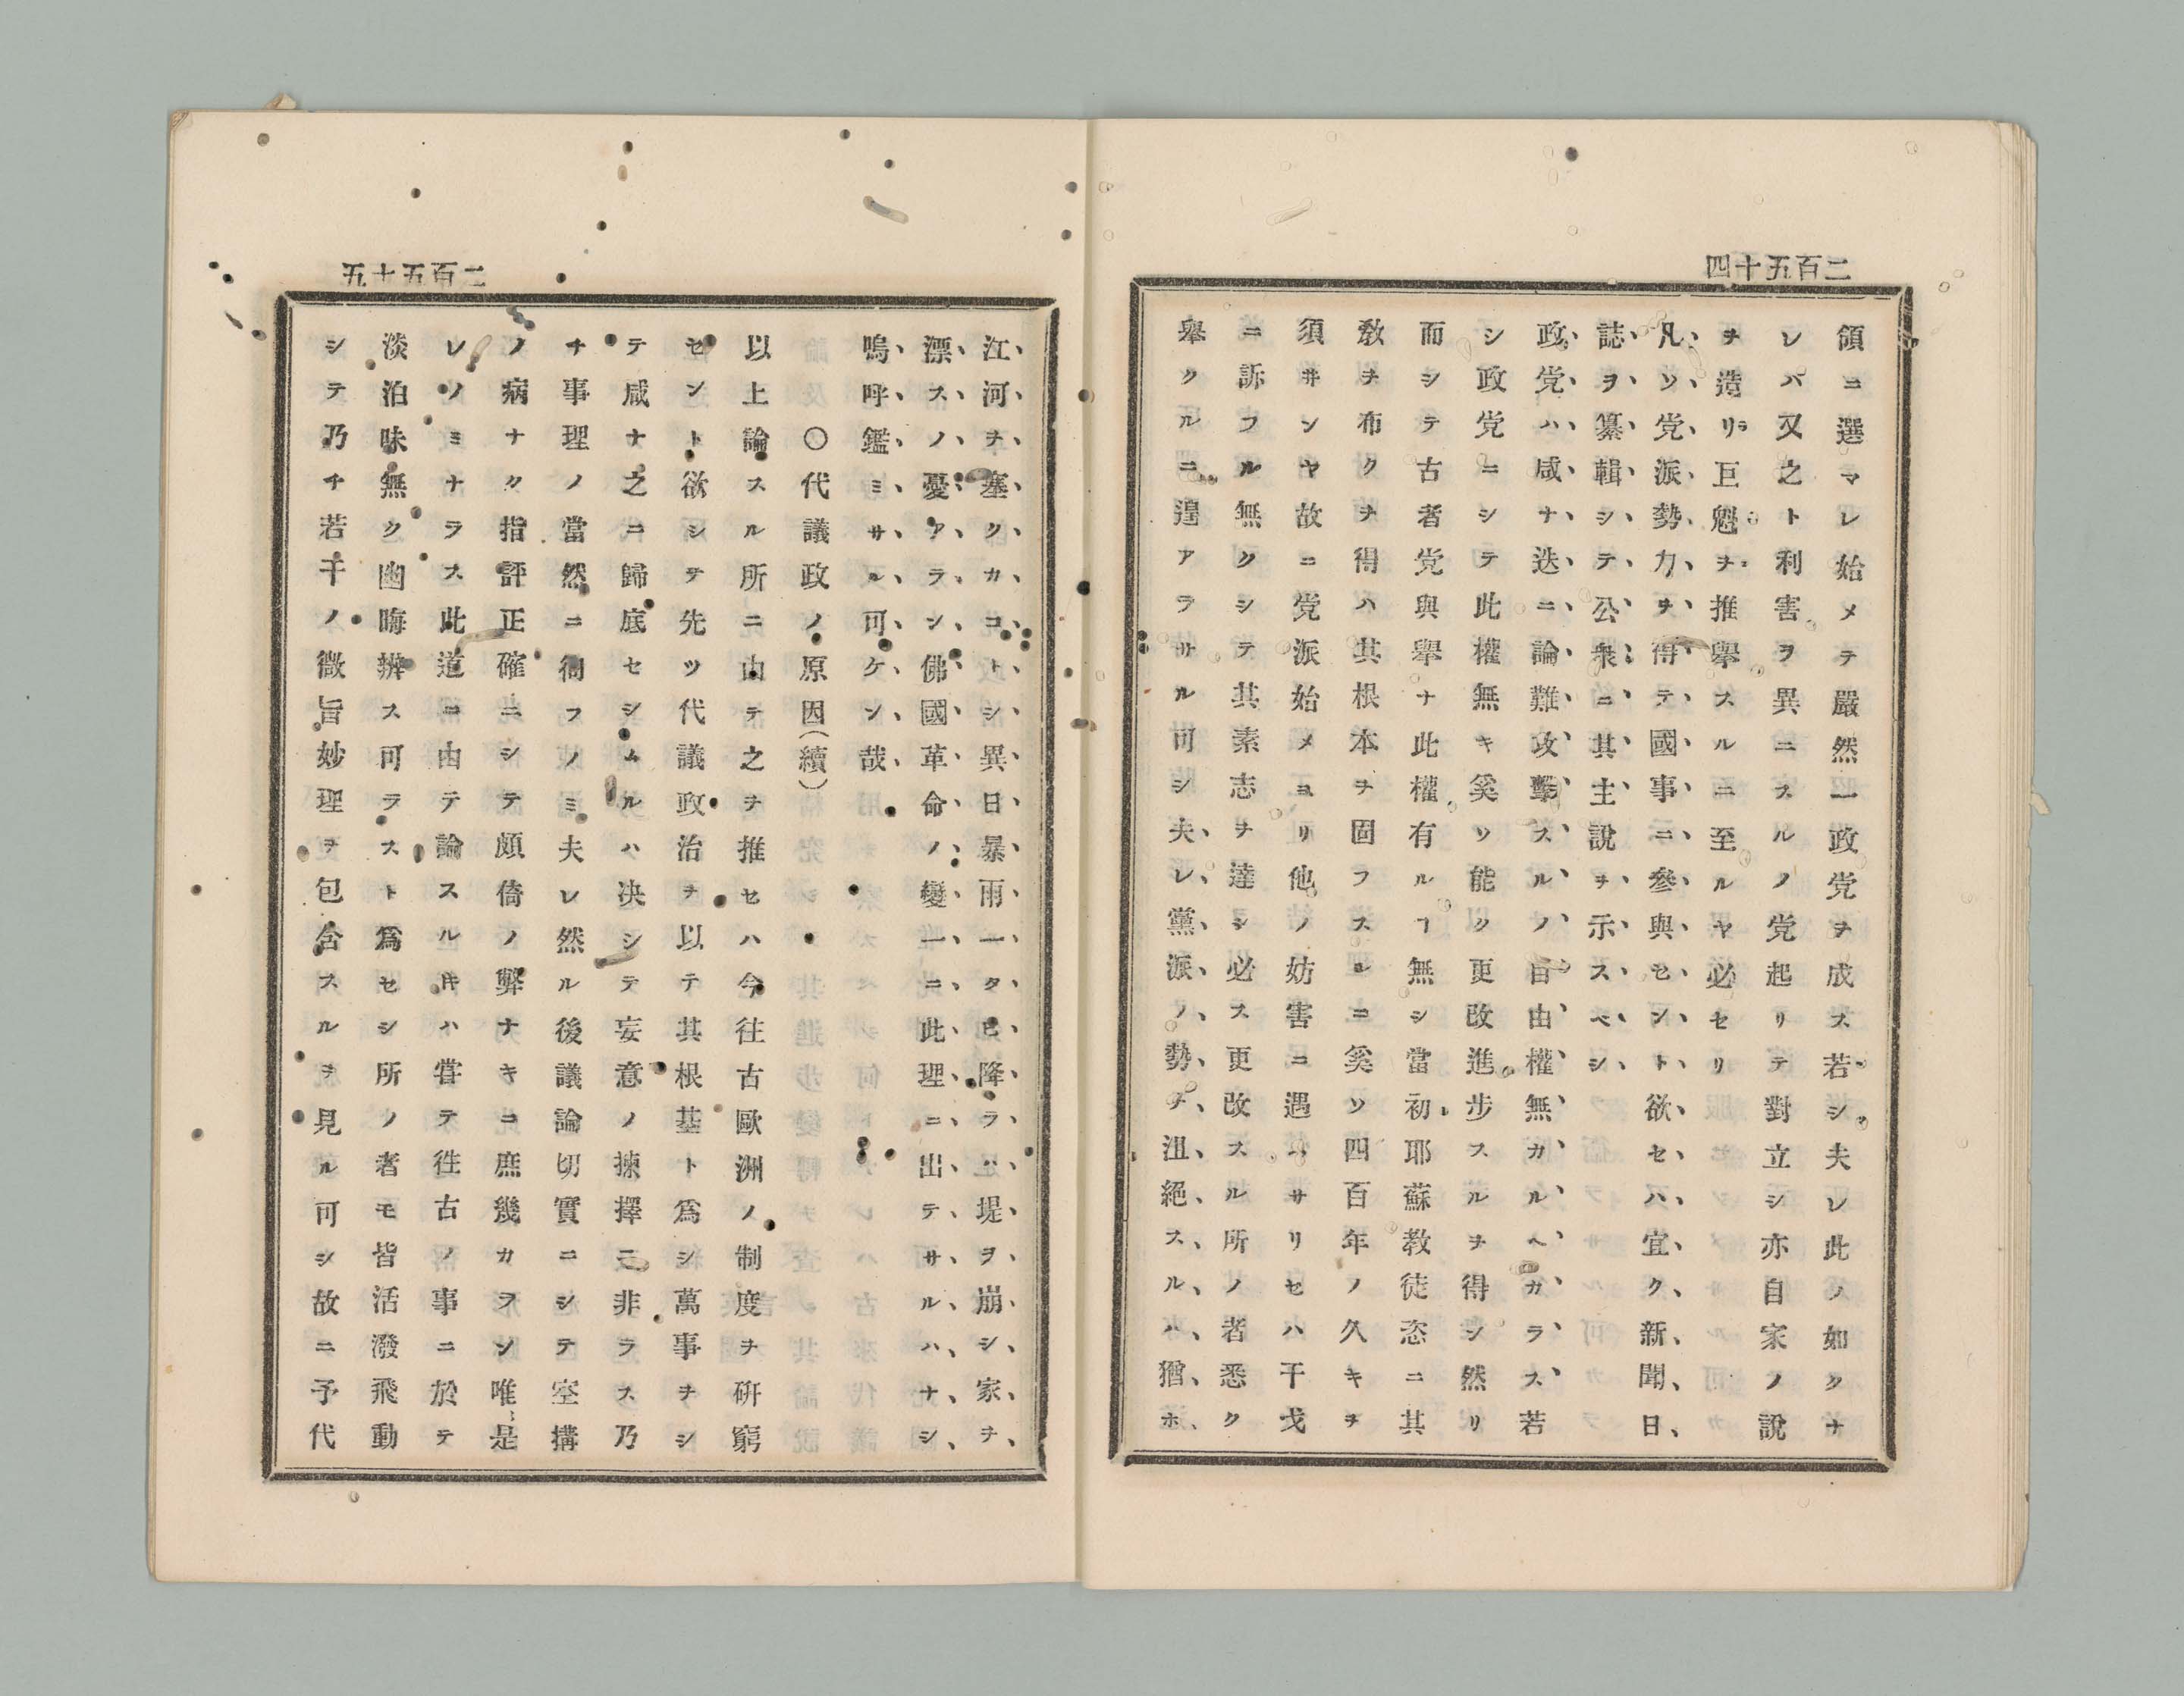 二百五十四
領ニ選マレ始メテ嚴然一政党ヲ成ス若シ夫レ此ノ如クナ
レバ又之ト利害ヲ異ニスルノ党起リテ對立シ亦自家ノ說
ヲ造リ巨魁ヲ推擧スルニ至ルヤ必セリ
凡ソ党派勢力ヲ得テ國事ニ參與セント欲セハ宜ク新聞日
誌ヲ纂輯シテ公衆ニ其主說ヲ示スベシ
政党ハ咸ナ迭ニ論難攻擊スルノ自由權無カルヘカラス若
シ政党ニシテ此權無キ奚ソ能ク更改進步スルヲ得ン然リ
而シテ古者党與擧ナ此權有ルヿ無シ當初耶蘇教徒恣ニ其
敎ヲ布クヲ得ハ其根本ヲ固フスルニ奚ソ四百年ノ久キヲ
須井ンヤ故ニ党派始メヨリ他ノ妨害ニ遇ハサリセハ干戈
ニ訴フル無クシテ其素志ヲ達シ必ス更改スル所ノ者悉ク
擧クルニ遑アラサル可シ夫レ黨派ノ勢ヲ沮絕スルハ猶ホ
二百五十五
江河ヲ塞クカコトシ異日暴雨一タヒ降ラハ堤ヲ崩シ家ヲ
漂スノ憂アラン佛國革命ノ變一ニ此理ニ出テサルハナシ
嗚呼鑑ミサル可ケン哉
○代議政ノ原因(續)
以上論スル所ニ由テ之ヲ推セハ今往古歐洲ノ制度ヲ硏窮
セント欲シテ先ツ代議政治ヲ以テ其根基ト爲シ萬事ヲシ
テ咸ナ之ニ歸底セシムルハ决シテ妄意ノ揀擇ニ非ラス乃
チ事理ノ當然ニ徇フノミ夫レ然ル後議論切實ニシテ空搆
ノ病ナク指評正確ニシテ頗倚ノ弊ナキニ庶幾カヲン唯是
レノミナラス此道ニ由テ論スル𪜈ハ甞テ徃古ノ事ニ於テ
淡泊味無ク幽晦辨ス可ラスト爲セシ所ノ者モ皆活潑飛動
シテ乃チ若干ノ微旨妙理ヲ包含スルヲ見ル可シ故ニ予代